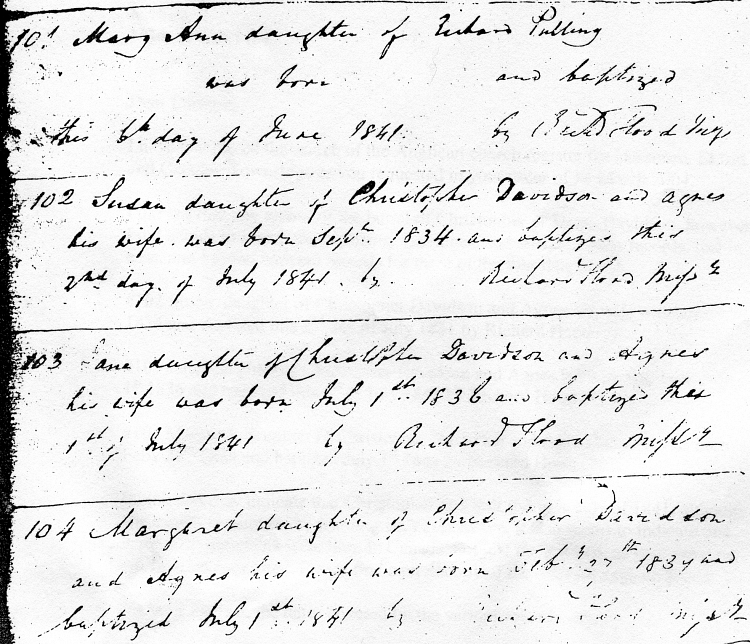 101 Mary Ann daughter of Richard Pulling
was born and baptized
this 6th day of June 1841 by Richd Flood Missy
102 Susan daughter of Christopher Davidson and Agnes
his wife was born Septr 1834 and baptized this
2nd day of July 1841 by Richard Flood Missy
103 Jane daughter of Christopher Davidson and Agnes
his wife was born July 1st 1836 and baptized this
1st of July 1841 by Richard Flood Missy
104 Margaret daughter of Christopher Davidson
and Agnes his wife was born Feby 27th and
baptized July 1st 1841 by Richard Flood Missy